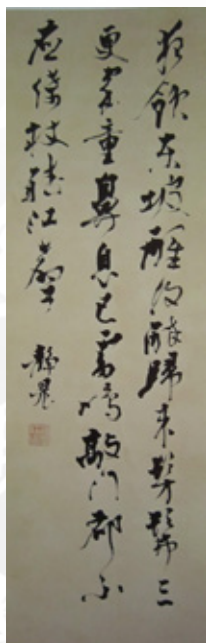 夜飲东坡醒復醉歸来髣髴三
更家童鼻息已雷鳴敲門都不
應倚杖聽江聲
靜墨